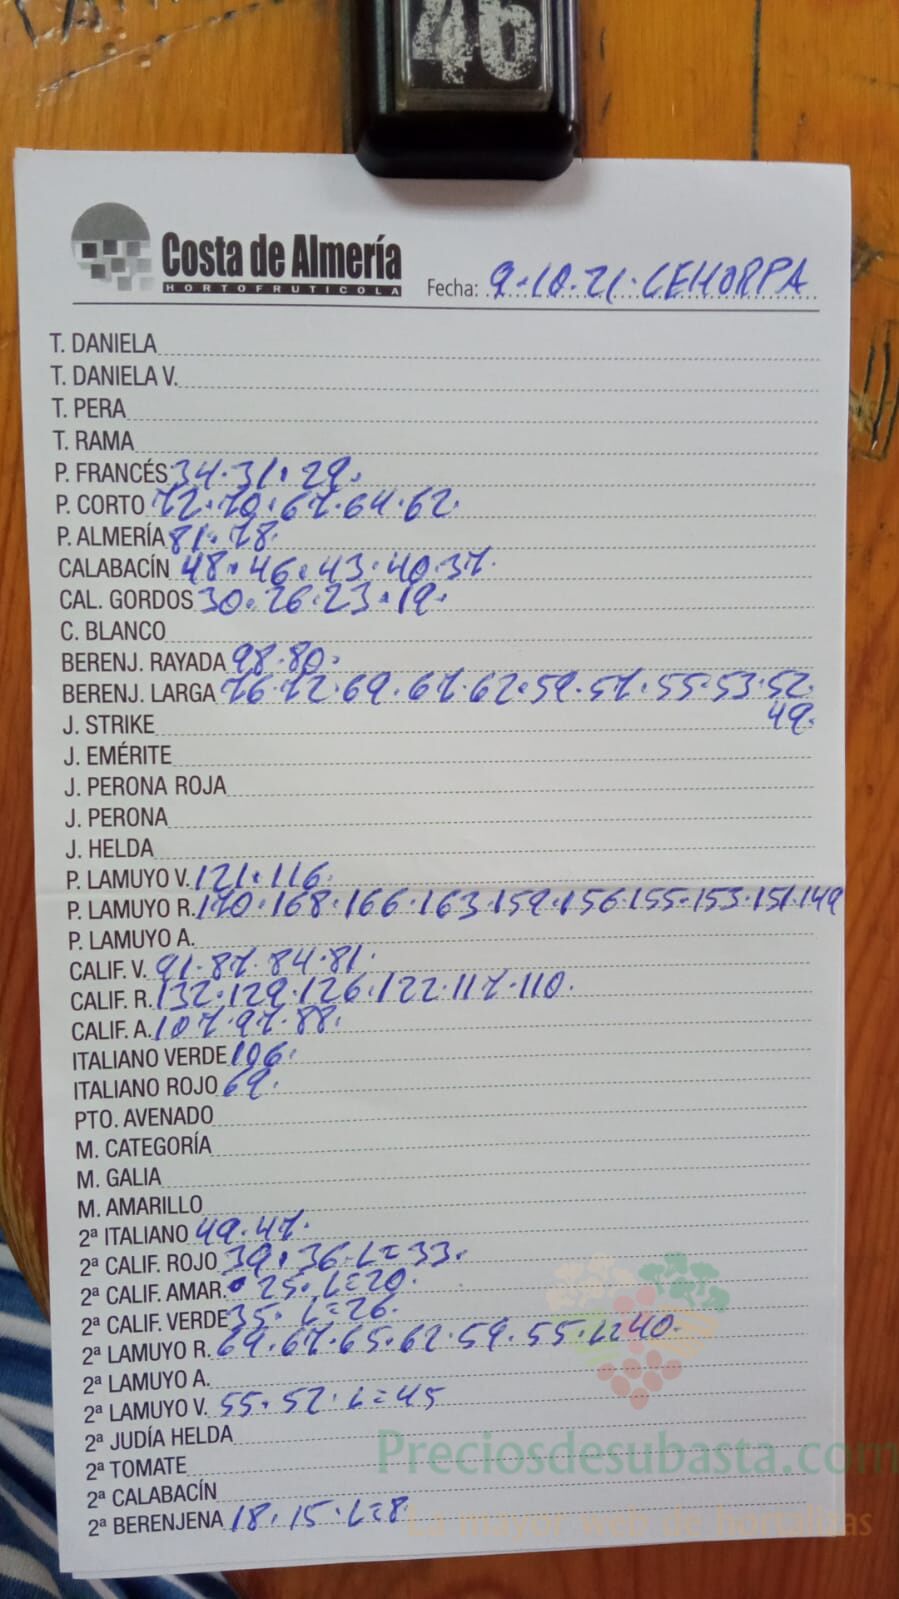 46
Costa de Almería
HORTOFRUTICOLA
Fecha: 9.10.21. CEHORPA
T. DANIELA
T. DANIELA V.
T. PERA
T. RAMA
P. FRANCÉS 34.31.29.
P. CORTO 72.70.67.64.62.
P. ALMERÍA 81.78.
CALABACÍN 48.46.43.40.37.
CAL. GORDOS 30.26.23.19.
C. BLANCO
BERENJ. RAYADA 98.80.
BERENJ. LARGA 76.72.69.67.62.59.57.55.53.52.
49.
J. STRIKE
J. EMÉRITE
J. PERONA ROJA
J. PERONA
J. HELDA
P. LAMUYO V. 121.116.
P. LAMUYO R. 170.168.166.163.159.156.155.153.151.149
P. LAMUYO A.
CALIF. V. 91.87.84.81.
CALIF. R. 132.129.126.122.117.110.
CALIF. A. 107.97.88.
ITALIANO VERDE 106.
ITALIANO ROJO 69.
PTO. AVENADO
M. CATEGORÍA
M. GALIA
M. AMARILLO
2ª ITALIANO 49.47.
2ª CALIF. ROJO 39.36.L=33.
2ª CALIF. AMAR. 25.L=20.
2ª CALIF. VERDE 35.L=26.
2ª LAMUYO R. 69.67.65.62.59.55.L=40.
2ª LAMUYO A.
2ª LAMUYO V. 55.52.L=45
2ª JUDÍA HELDA
2ª TOMATE
2ª CALABACÍN
2ª BERENJENA 18.15.L=8
Preciosdesubasta.com
La mayor web de hortalizas